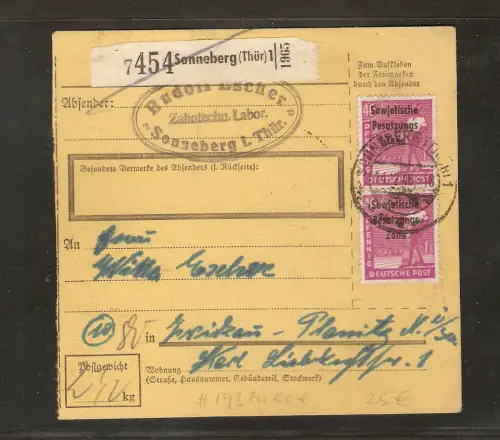 7454 Sonneberg (Thür) 1 1965
Zum Aufkleben
der Freimarken
durch den Absender
Absender:
Rudolf Escher
Zahntechn. Labor.
Sonneberg i. Thür.
Sowjetische
Besatzungs
Zone
DEUTSCHE POST
Sowjetische
Besatzungs
Zone
PFENNIG
DEUTSCHE POST
Besondere Vermerke des Absenders (s. Rückseite):
An Frau
Escher
10 in Zwickau - Planitz
Postgewicht
kg
Wohnung Karl Liebknechtstr. 1
(Straße, Hausnummer, Gebäudeteil, Stockwerk)
25 €